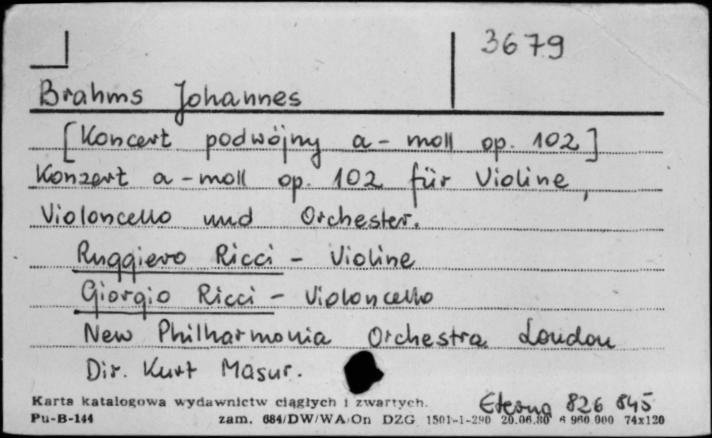 3679
Brahms Johannes
[Koncert podwójny a-moll op. 102]
Konzert a-moll op. 102 für Violine,
Violoncello und Orchester.
Ruggiero Ricci - Violine
Giorgio Ricci - Violoncello
New Philharmonia Orchestra London
Dir. Kurt Masur.
Eterna 826 845
Karta katalogowa wydawnictw ciągłych i zwartych.
Pu-B-144 zam. 684/DW/WA/On DZG 1501-1-290 20.06.80 6 960 000 74x120